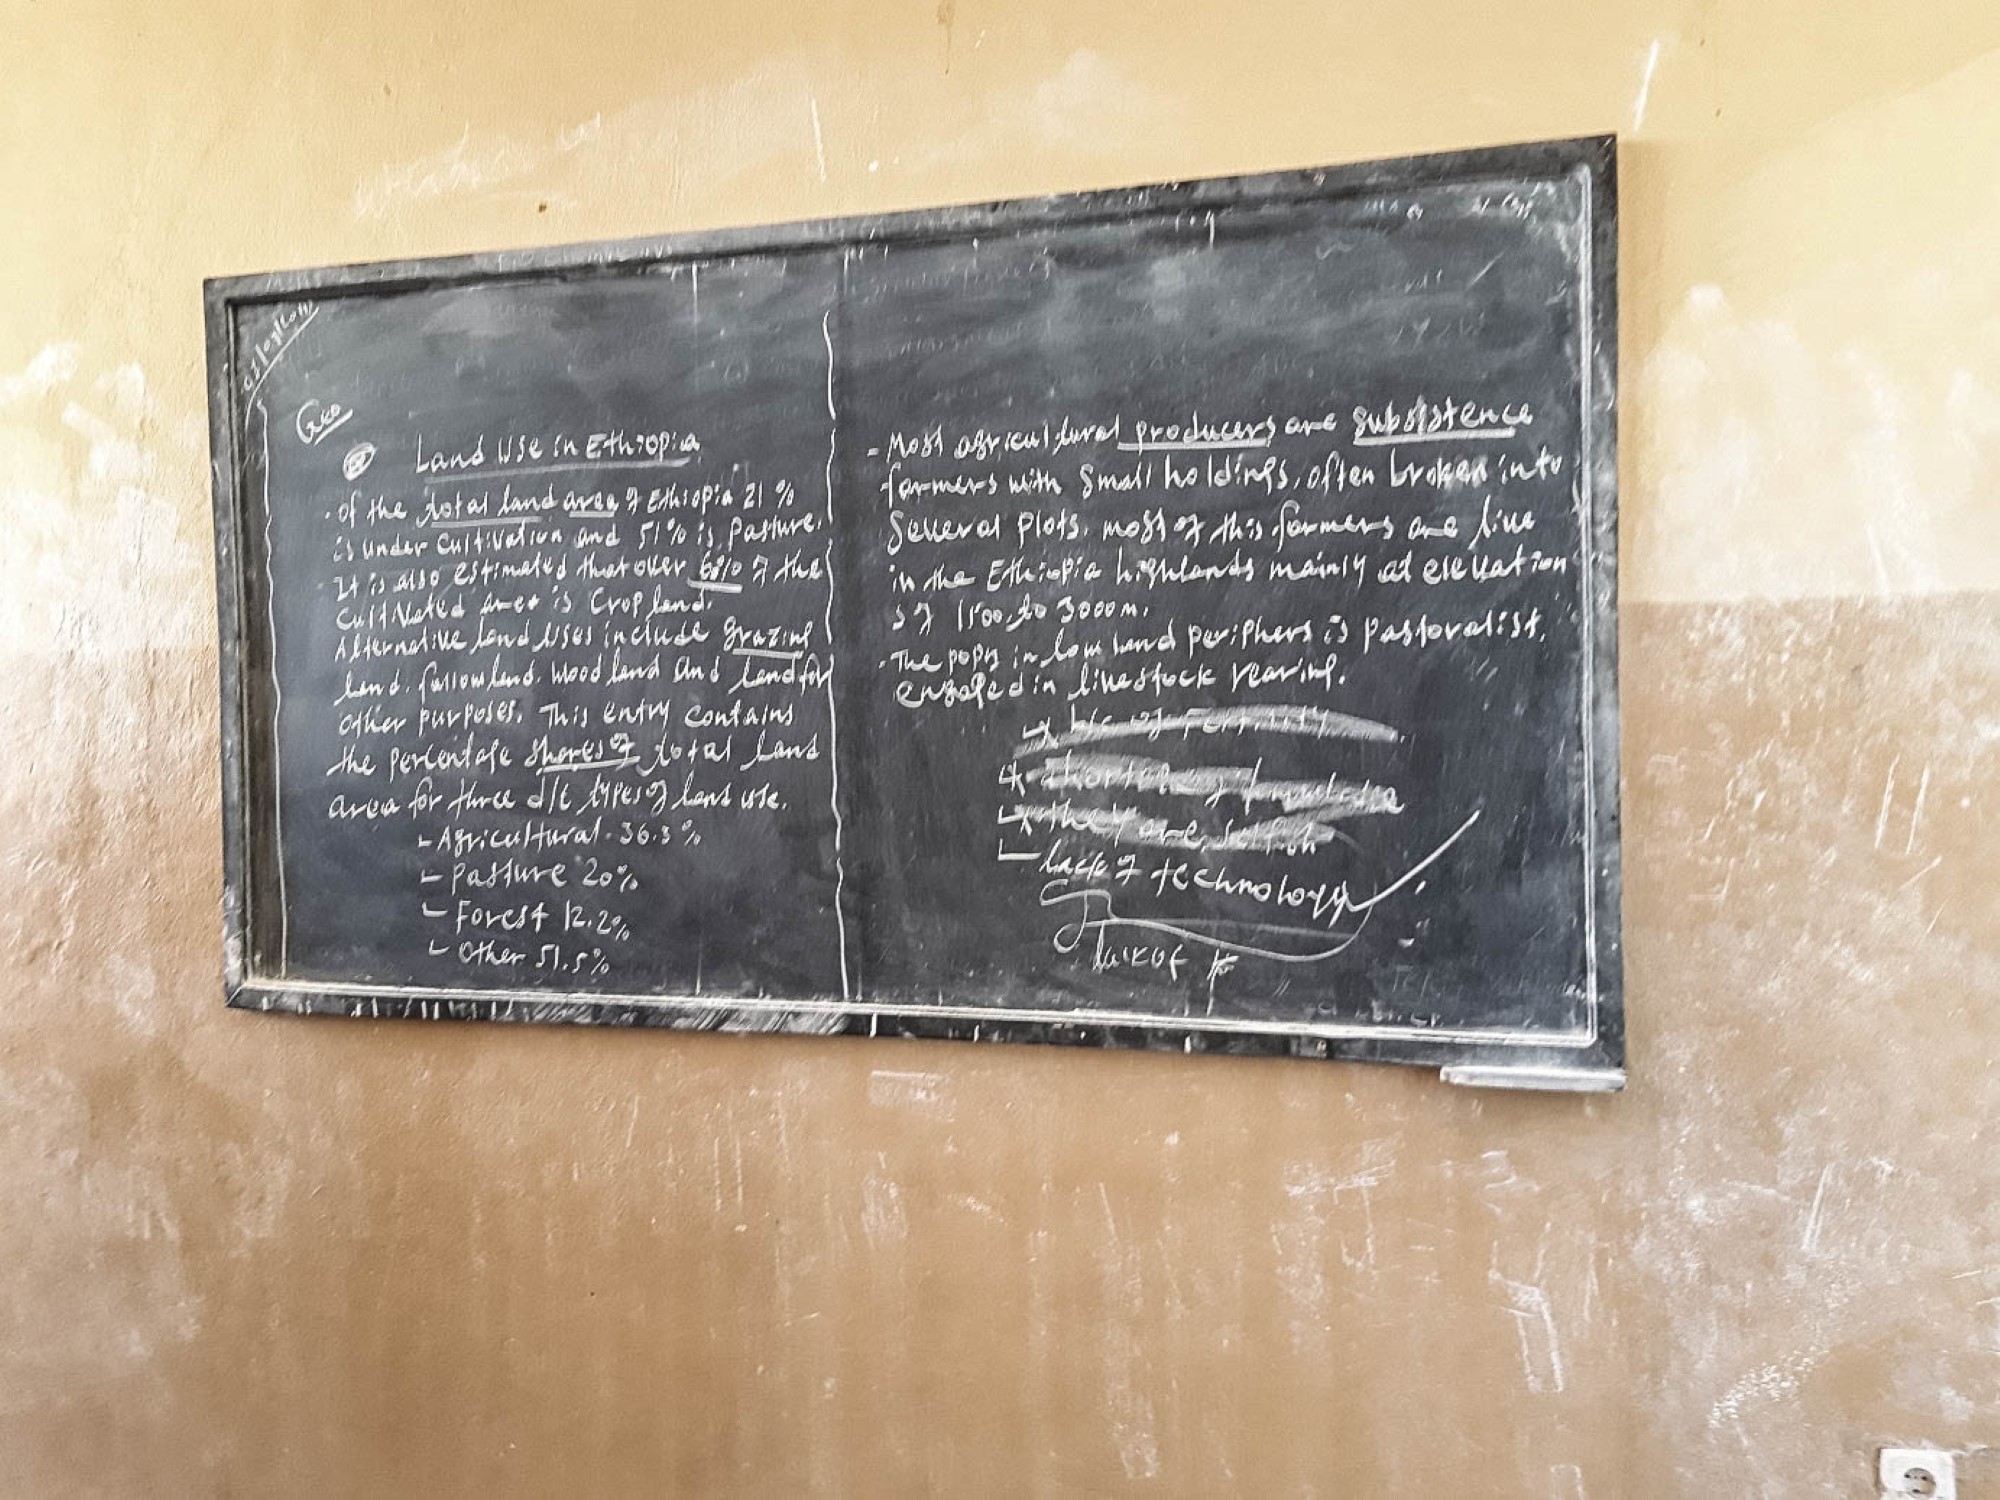 Geo
Land Use in Ethiopia
. of the total land area of Ethiopia 21%
is under cultivation and 51% is Pasture.
It is also estimated that over 60% of the
Cultivated area is Crop land.
Alternative land Uses include grazing
land, fallow land, Wood land and land for
Other purposes. This entry contains
the percentage shares of total land
area for three d/t types of land use.
- Agricultural - 36.3%
- Pasture 20%
- Forest 12.2%
- Other 51.5%
- Most agricultural producers are subsistence
farmers with Small holdings, often broken into
Several plots. most of this farmers are live
in the Ethiopia highlands mainly at elevation
s of 1500 to 3000m.
. The popn in low land periphers is Pastoralist,
engaged in livestock rearing.
b/c of Fertility
shortage of
they are selfish
lack of technology